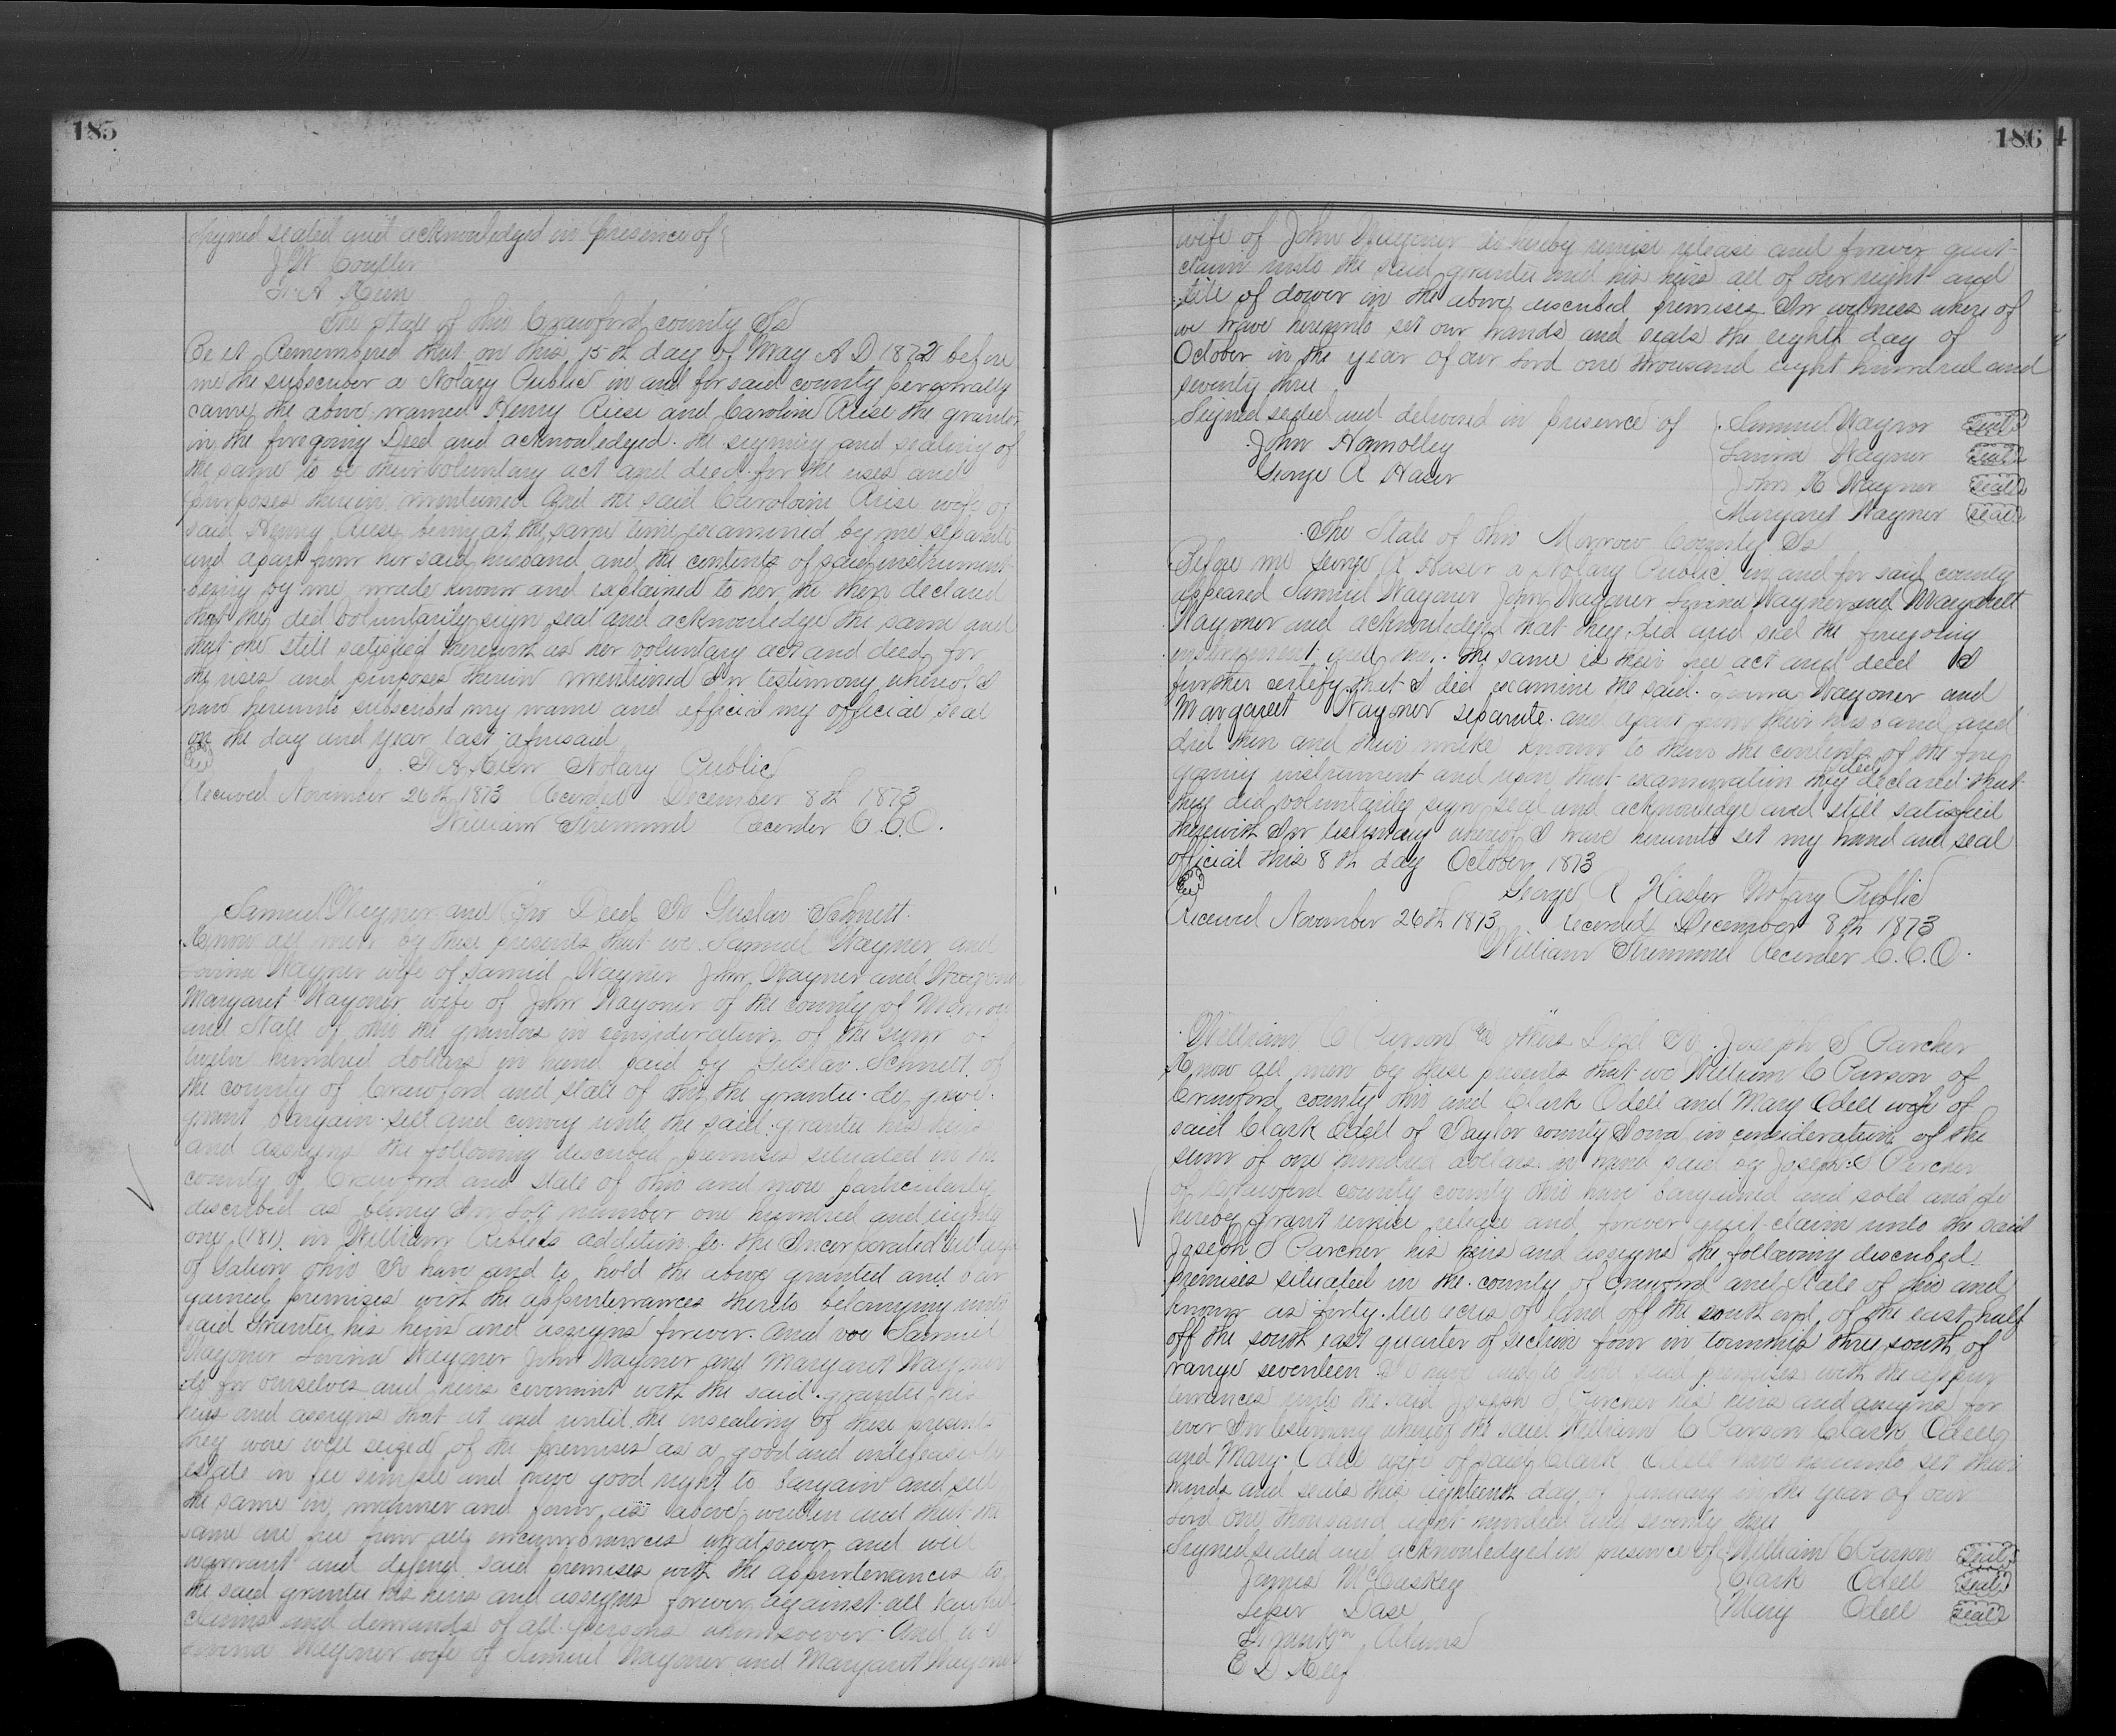 185
Signed sealed and acknowledged in presence of
J W Coulter
A Keen
The State of Ohio Crawford county Ss
Be it Remembered that on this 15th day of May A D 1872 before
me the subscriber a Notary Public in and for said county personally
came the above named Henry Riese and Caroline Riese the grantors
in the foregoing Deed and acknowledged the signing and sealing of
the same to be their voluntary act and deed for the uses and
purposes therein mentioned And the said Caroline Riese wife of
said Henry Riese being at the same time examined by me separate
and apart from her said husband and the contents of said instrument
being by me made known and explained to her she then declared
that she did voluntarily sign seal and acknowledge the same and
that she still satisfied therewith as her voluntary act and deed for
the uses and purposes therein mentioned In testimony whereof I
have hereunto subscribed my name and my official seal
on the day and year last aforesaid
A Keen Notary Public
Received November 26th 1873 Recorded December 8th 1873
William Stremmel Recorder C.C.O.
Samuel Wagner and Deed To Gustav Schnett
Know all men by these presents that we Samuel Wagner and
Lovina Wagner wife of Samuel Wagner John Wagner and
Margaret Wagoner wife of John Wagoner of the county of
and State of Ohio the grantors in consideration of the sum of
twelve hundred dollars in hand paid by Gustav Schnett of
the county of Crawford and State of Ohio the grantee do give
grant bargain sell and convey unto the said grantee his heirs
and assigns the following described premises situated in the
county of Crawford and State of Ohio and more particularly
described as being In Lot number one hundred and eighty
one (181) in William addition to the Incorporated village
of Galion Ohio To have and to hold the above granted and bar
gained premises with the appurtenances thereto belonging unto
said Grantee his heirs and assigns forever. And we Samuel
Wagoner Lovina Wagoner John Wagoner and Margaret Wagoner
do for ourselves and heirs covenant with the said grantee his
heirs and assigns that at and until the ensealing of these presents
they were well seized of the premises as a good and indefeasible
estate in fee simple and have good right to bargain and sell
the same in manner and form as above written and that the
same are free from all incumbrances whatsoever and will
warrant and defend said premises with the appurtenances to
the said grantee his heirs and assigns forever against all lawful
claims and demands of all persons whomsoever And we
Lovina Wagoner wife of Samuel Wagoner and Margaret Wagoner
186
wife of John Wagoner do hereby remise release and forever quit
claim unto the said grantee and his heirs all of our right and
title of dower in the above described premises In witness where of
we have hereunto set our hands and seals the eighth day of
October in the year of our Lord one thousand eight hundred and
seventy three
Signed sealed and delivered in presence of Samuel Wagner seal
John Lovina Wagner seal
George A Haser John Wagner seal
Margaret Wagner seal
The State of Ohio Morrow County Ss
Before me George A Haser a Notary Public in and for said county
appeared Samuel Wagoner John Wagoner Lovina Wagner and Margarett
Wagoner and acknowledged that they did and seal the foregoing
instrument and that the same is their free act and deed I
further certify that I did examine the said Lovina Wagoner and
Margaret Wagoner separate and apart from their husband and
did then and their make known to them the contents of the fore
going instrument and upon that examination they declared that
they did voluntarily sign seal and acknowledge and still satisfied
therewith In testimony whereof I have hereunto set my hand and seal
official this 8th day October 1873
George A Haser Notary Public
Received November 26th 1873 recorded December 8th 1873
William Stremmel Recorder C.C.O.
William C Parson Deed To Joseph S Parcher
Know all men by these presents that we William C Parson of
Crawford county Ohio and Clark Odell and Mary Odell wife of
said Clark Odell of Taylor county Iowa in consideration of the
sum of one hundred dollars in hand paid by Joseph S Parcher
of Crawford county county Ohio have bargained and sold and do
hereby grant remise release and forever quit claim unto the said
Joseph S Parcher his heirs and assigns the following described
premises situated in the county of Crawford and State of Ohio and
known as forty two acres of land off the south end of the east half
off the south east quarter of section four in township three south of
range seventeen To have and to hold said premises with the appur
tenances unto the said Joseph S Parcher his heirs and assigns for
ever In testimony whereof the said William C Parson Clark Odell
and Mary Odell wife of said Clark Odell have hereunto set their
hands and seals this eighteenth day of January in the year of our
Lord one thousand eight hundred and seventy three
Signed sealed and acknowledged in presence of William C Parson seal
James McCuskey Clark Odell seal
Dase Mary Odell seal
Adams
E D